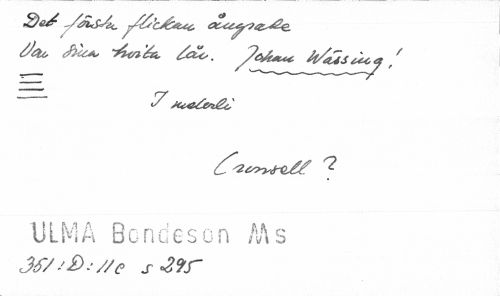 Det första flickan ångrade
Var sina hvita lår. Johan Wässing!
I nederli
Cronsell?
ULMA Bondeson Ms
351:D:11c s 295